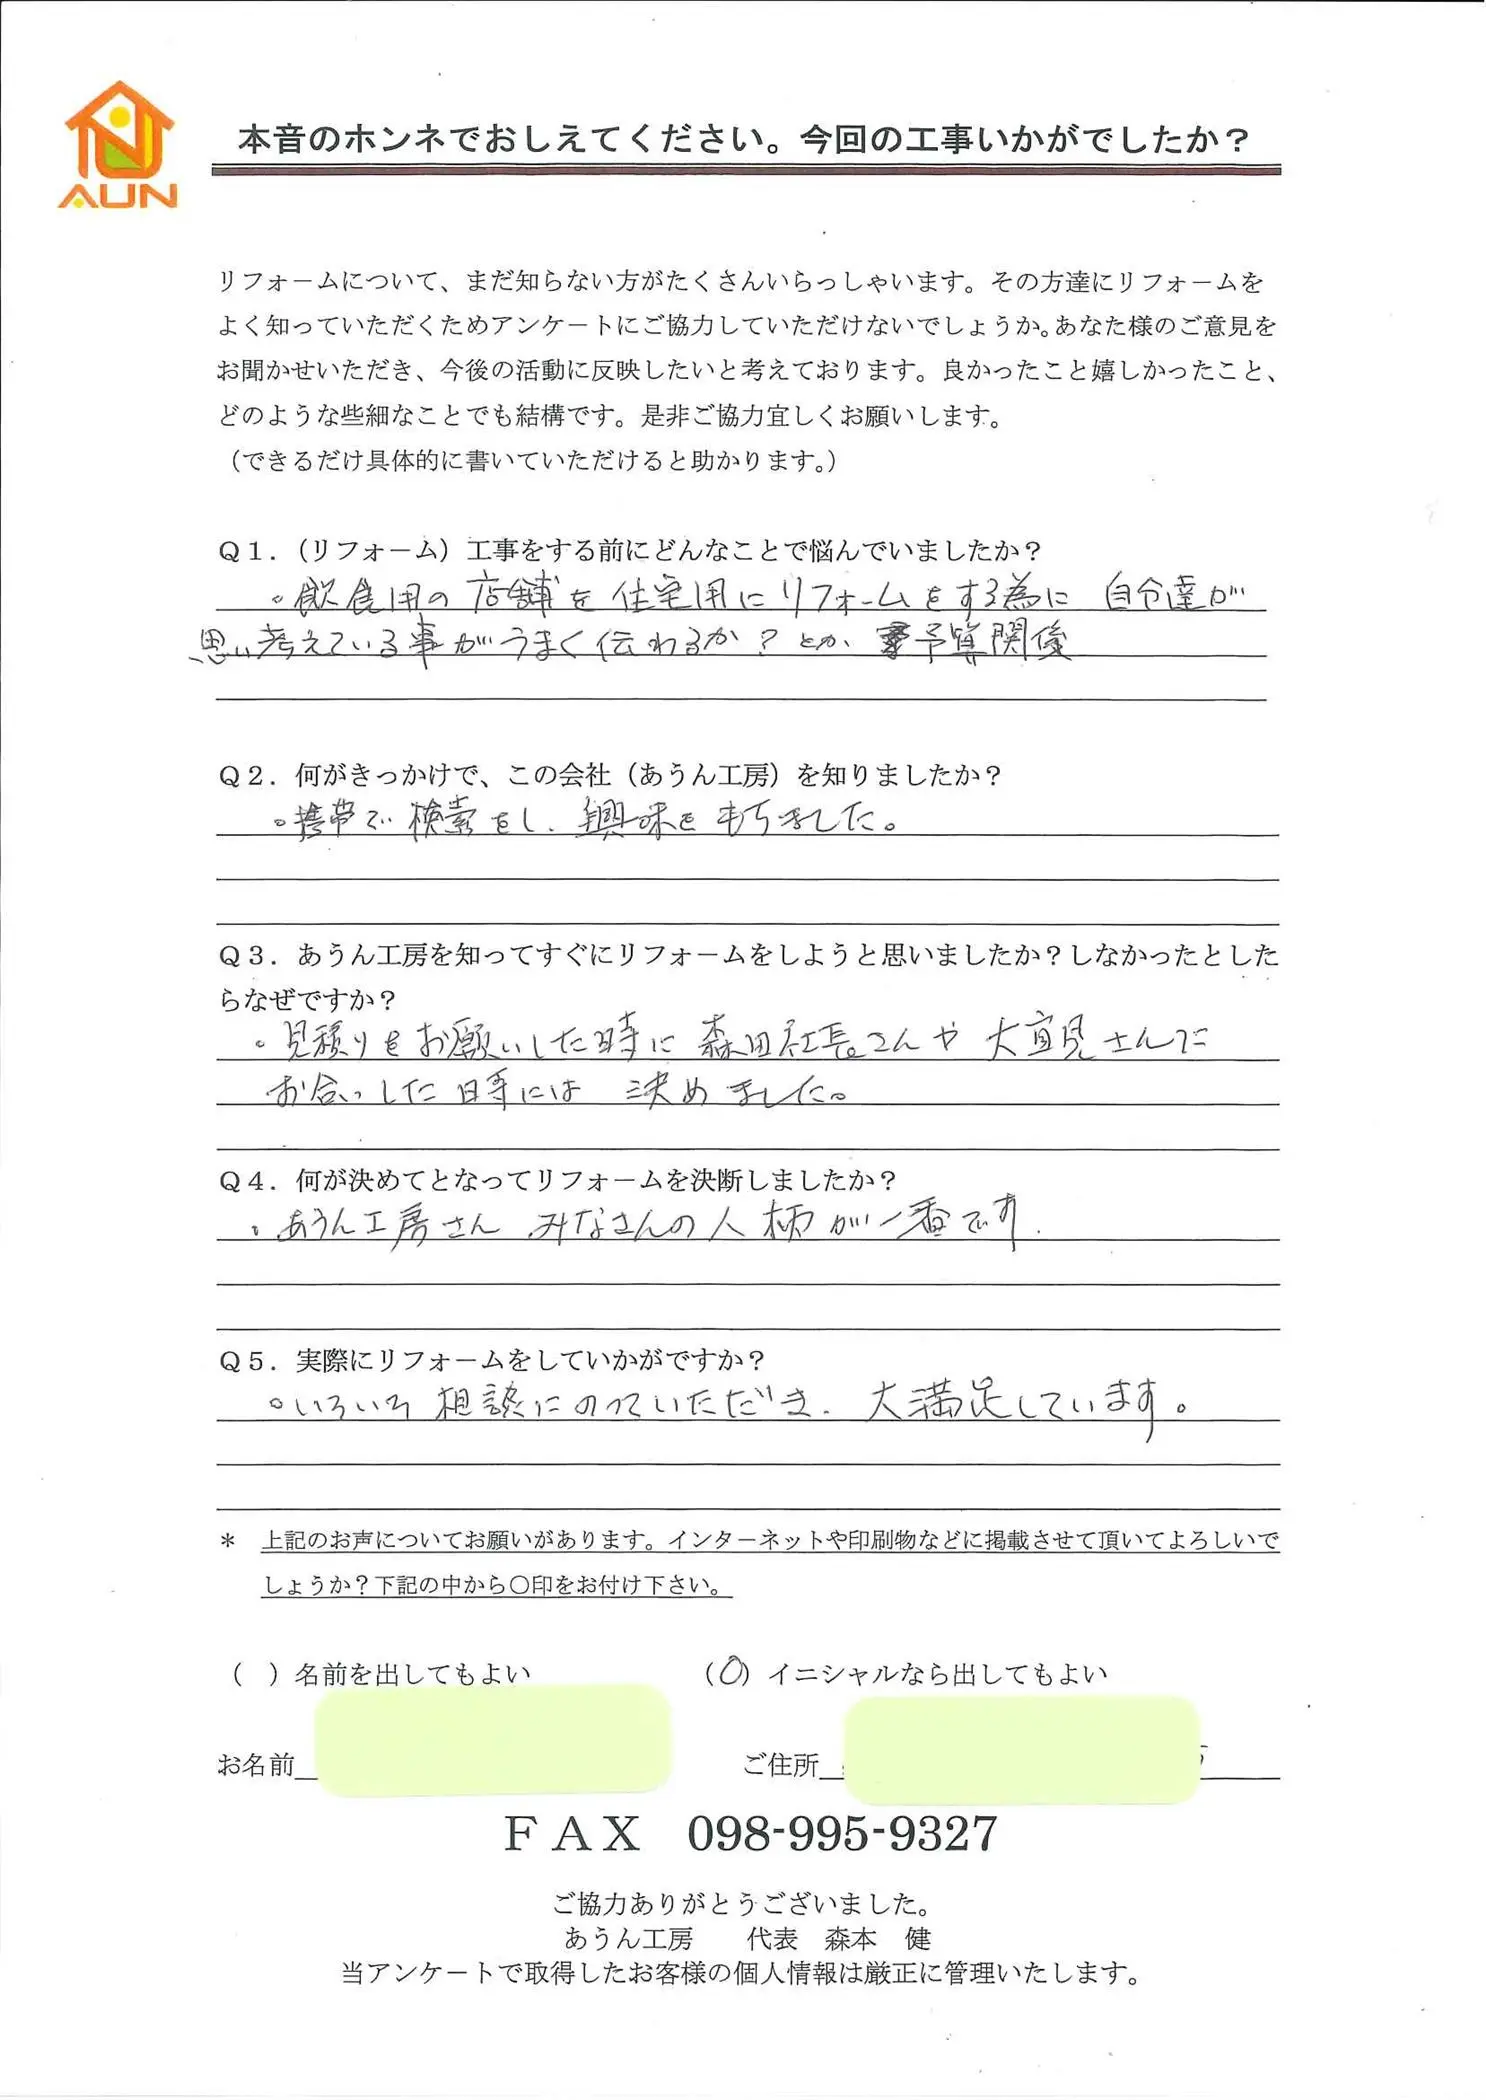 AUN
本音のホンネでおしえてください。今回の工事いかがでしたか？
リフォームについて、まだ知らない方がたくさんいらっしゃいます。その方達にリフォームを
よく知っていただくためアンケートにご協力していただけないでしょうか。あなた様のご意見を
お聞かせいただき、今後の活動に反映したいと考えております。良かったこと嬉しかったこと、
どのような些細なことでも結構です。是非ご協力宜しくお願いします。
（できるだけ具体的に書いていただけると助かります。）
Ｑ１．（リフォーム）工事をする前にどんなことで悩んでいましたか？
。飲食用の店舗を住宅用にリフォームをする為に 自分達が
思い考えている事がうまく伝わるか？とか、予算関係
Ｑ２．何がきっかけで、この会社（あうん工房）を知りましたか？
。携帯で検索をし、興味をもちました。
Ｑ３．あうん工房を知ってすぐにリフォームをしようと思いましたか？しなかったとした
らなぜですか？
。見積りをお願いした時に森田社長さんや大宜見さんに
お合いした時には 決めました。
Ｑ４．何が決めてとなってリフォームを決断しましたか？
。あうん工房さん みなさんの人柄が一番です.
Ｑ５．実際にリフォームをしていかがですか？
。いろいろ相談にのっていただき、大満足しています。
＊ 上記のお声についてお願いがあります。インターネットや印刷物などに掲載させて頂いてよろしいで
しょうか？下記の中から〇印をお付け下さい。
（ ）名前を出してもよい （〇）イニシャルなら出してもよい
お名前 ご住所
ＦＡＸ 098-995-9327
ご協力ありがとうございました。
あうん工房 代表 森本 健
当アンケートで取得したお客様の個人情報は厳正に管理いたします。